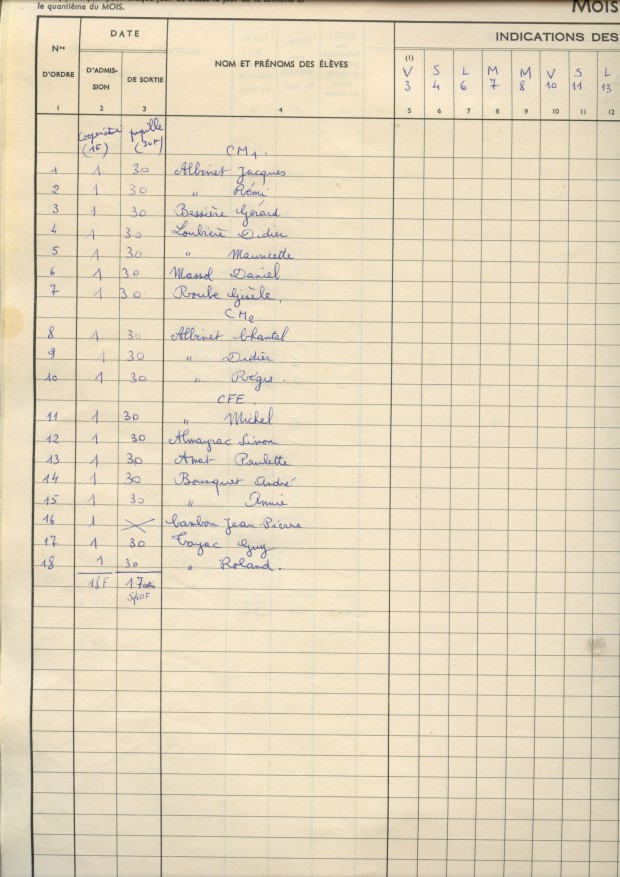 le quantième du MOIS.
MOIS
DATE
INDICATIONS DES
Nos D'ORDRE
D'ADMIS-SION
DE SORTIE
NOM ET PRÉNOMS DES ÉLÈVES
(1)
V 3 S 4 L 6 M 7 M 8 V 10 S 11 L 13
1 2 3 4 5 6 7 8 9 10 11 12
pupille
CM1.
1 1 30 Albinet Jacques
2 1 30 " Rémi
3 1 30 Bessière Gérard
4 1 30 Loubière Didier
5 1 30 " Mauricette
6 1 30 Massol Daniel
7 1 30 Roube Gisèle.
CM2
8 1 30 Albinet Chantal
9 1 30 " Didier
10 1 30 " Régis.
CFE.
11 1 30 " Michel
12 1 30 Almayrac Simon
13 1 30 Amat Paulette
14 1 30 Bousquet André
15 1 30 " Annie
16 1 X Cambon Jean Pierre
17 1 30 Cayac Guy
18 1 30 " Roland.
18F 17